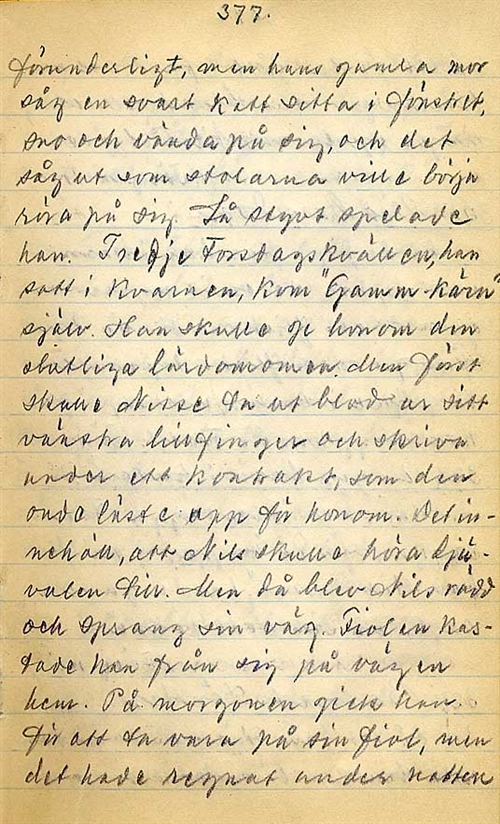 377.
förunderligt, men hans gamla mor
såg en svart katt sitta i fönstret,
sno och vända på sig, och det
såg ut som stolarna ville börja
röra på sig. Så styvt spelade
han. Tredje Torsdagskvällen, han
satt i kvarnen, kom "Gamm-kärn"
själv. Han skulle ge honom den
slutliga lärdomomen. Men först
skulle Nisse ta ut blod ur sitt
vänstra lillfinger och skriva
under ett kontrakt, som den
onde läste upp för honom. Det in-
nehöll, att Nils skulle höra djä-
vulen till. Men då blev Nils rädd
och sprang sin väg. Fiolen kas-
tade han från sig på vägen
hem. På morgonen gick han
för att ta vara på sin fiol, men
det hade regnat under natten